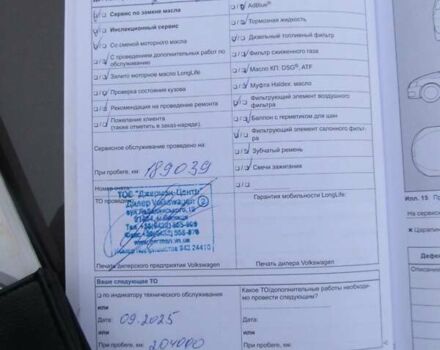 Сервис по замене масла
Инспекционный сервис
Со сменой моторного масла
С проведением дополнительных работ по
обслуживанию
Залито моторное масло LongLife
Проверка состояния кузова
Рекомендация на проведение ремонта
Пожелание клиента
(также отметить в заказ-наряде).
Сервисное обслуживание проведено на
При пробеге, км
189039
ТО проведено
ТОВ "Джерман-Центр"
Дилер Volkswagen
Печать дилерского предприятия Volkswagen
AdBlue®
Тормозная жидкость
Дизельный топливный фильтр
Фильтр сжиженного газа
Масло КП: DSG®, ATF
Муфта Haldex: масло
Фильтрующий элемент воздушного
фильтра
Баллон с герметиком для шин
Фильтрующий элемент салонного фильт-
ра
Зубчатый ремень
Свечи зажигания
Гарантия мобильности LongLife:
Печать дилера Volkswagen
Ваше следующее ТО
по индикатору технического обслуживания
или
Дата:
09.2025
или
При пробеге, км
204000
Какое ТО/дополнительные работы необходи-
мо провести следующим?
Илл. 15